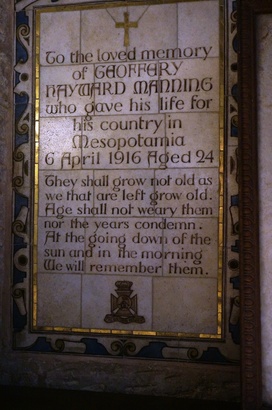 To the loved memory
of GEOFFERY
HAYWARD MANNING
who gave his life for
his country in
Mesopotamia
6 April 1916 Aged 24
They shall grow not old as
we that are left grow old.
Age shall not weary them
nor the years condemn.
At the going down of the
sun and in the morning
We will remember them.